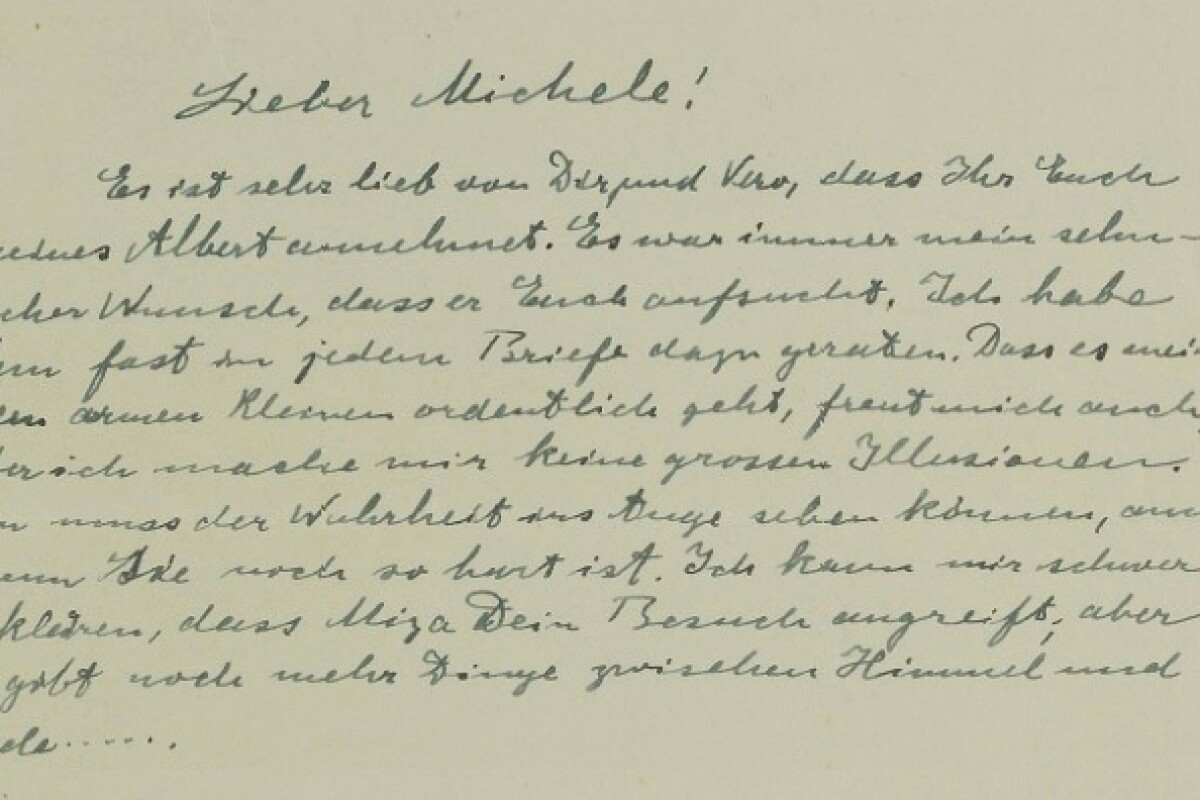 Lieber Michele!
Es ist sehr lieb von Dir, und Vero, dass Ihr Euch
meines Albert annehmet. Es war immer mein sehn-
cher Wunsch, dass er Euch aufsucht. Ich habe
hm fast in jedem Briefe dazu geraten. Dass es mei-
en armen Kleinen ordentlich geht, freut mich auch,
ber ich mache mir keine grossen Illusionen.
n muss der Wahrheit ins Auge sehen können, auc
enn Sie noch so hart ist. Ich kann mir schwer
klären, dass Miza Dein Besuch angreift, aber
gibt noch mehr Dinge zwischen Himmel und
de.......